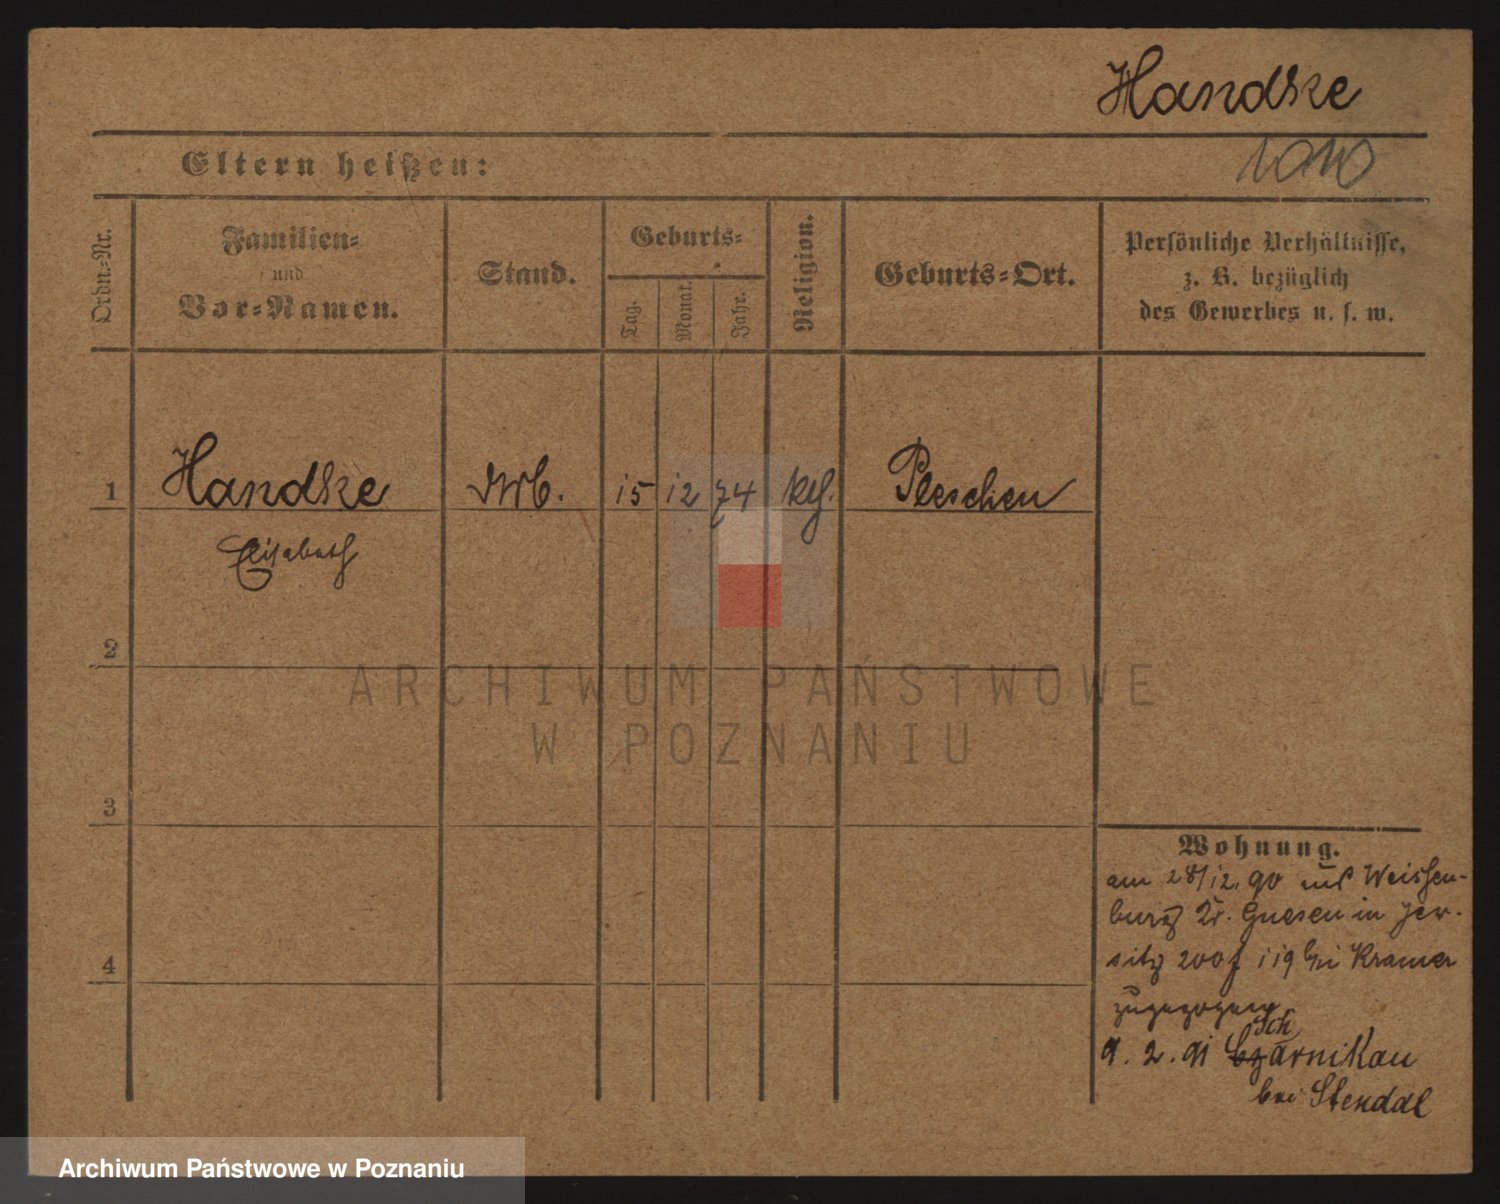 Handke
1010
Eltern heißen:
Ordn.-Nr.
Familien-
und
Vor-Namen.
Stand.
Geburts-
Tag.
Monat.
Jahr.
Religion.
Geburts-Ort.
Persönliche Verhältnisse,
z. B. bezüglich
des Gewerbes u. s. w.
1 Handke 15 12 74 kth. Pleschen
Elisabeth
2
3
4
Wohnung.
am 28/12. 90 aus Weissen-
burg Kr. Gnesen in Jer-
sitz 119 bei Kramer
zugezogen
Sch
9. 2. 91 Czarnikau
bei Stendal
ARCHIWUM PAŃSTWOWE
W POZNANIU
Archiwum Państwowe w Poznaniu